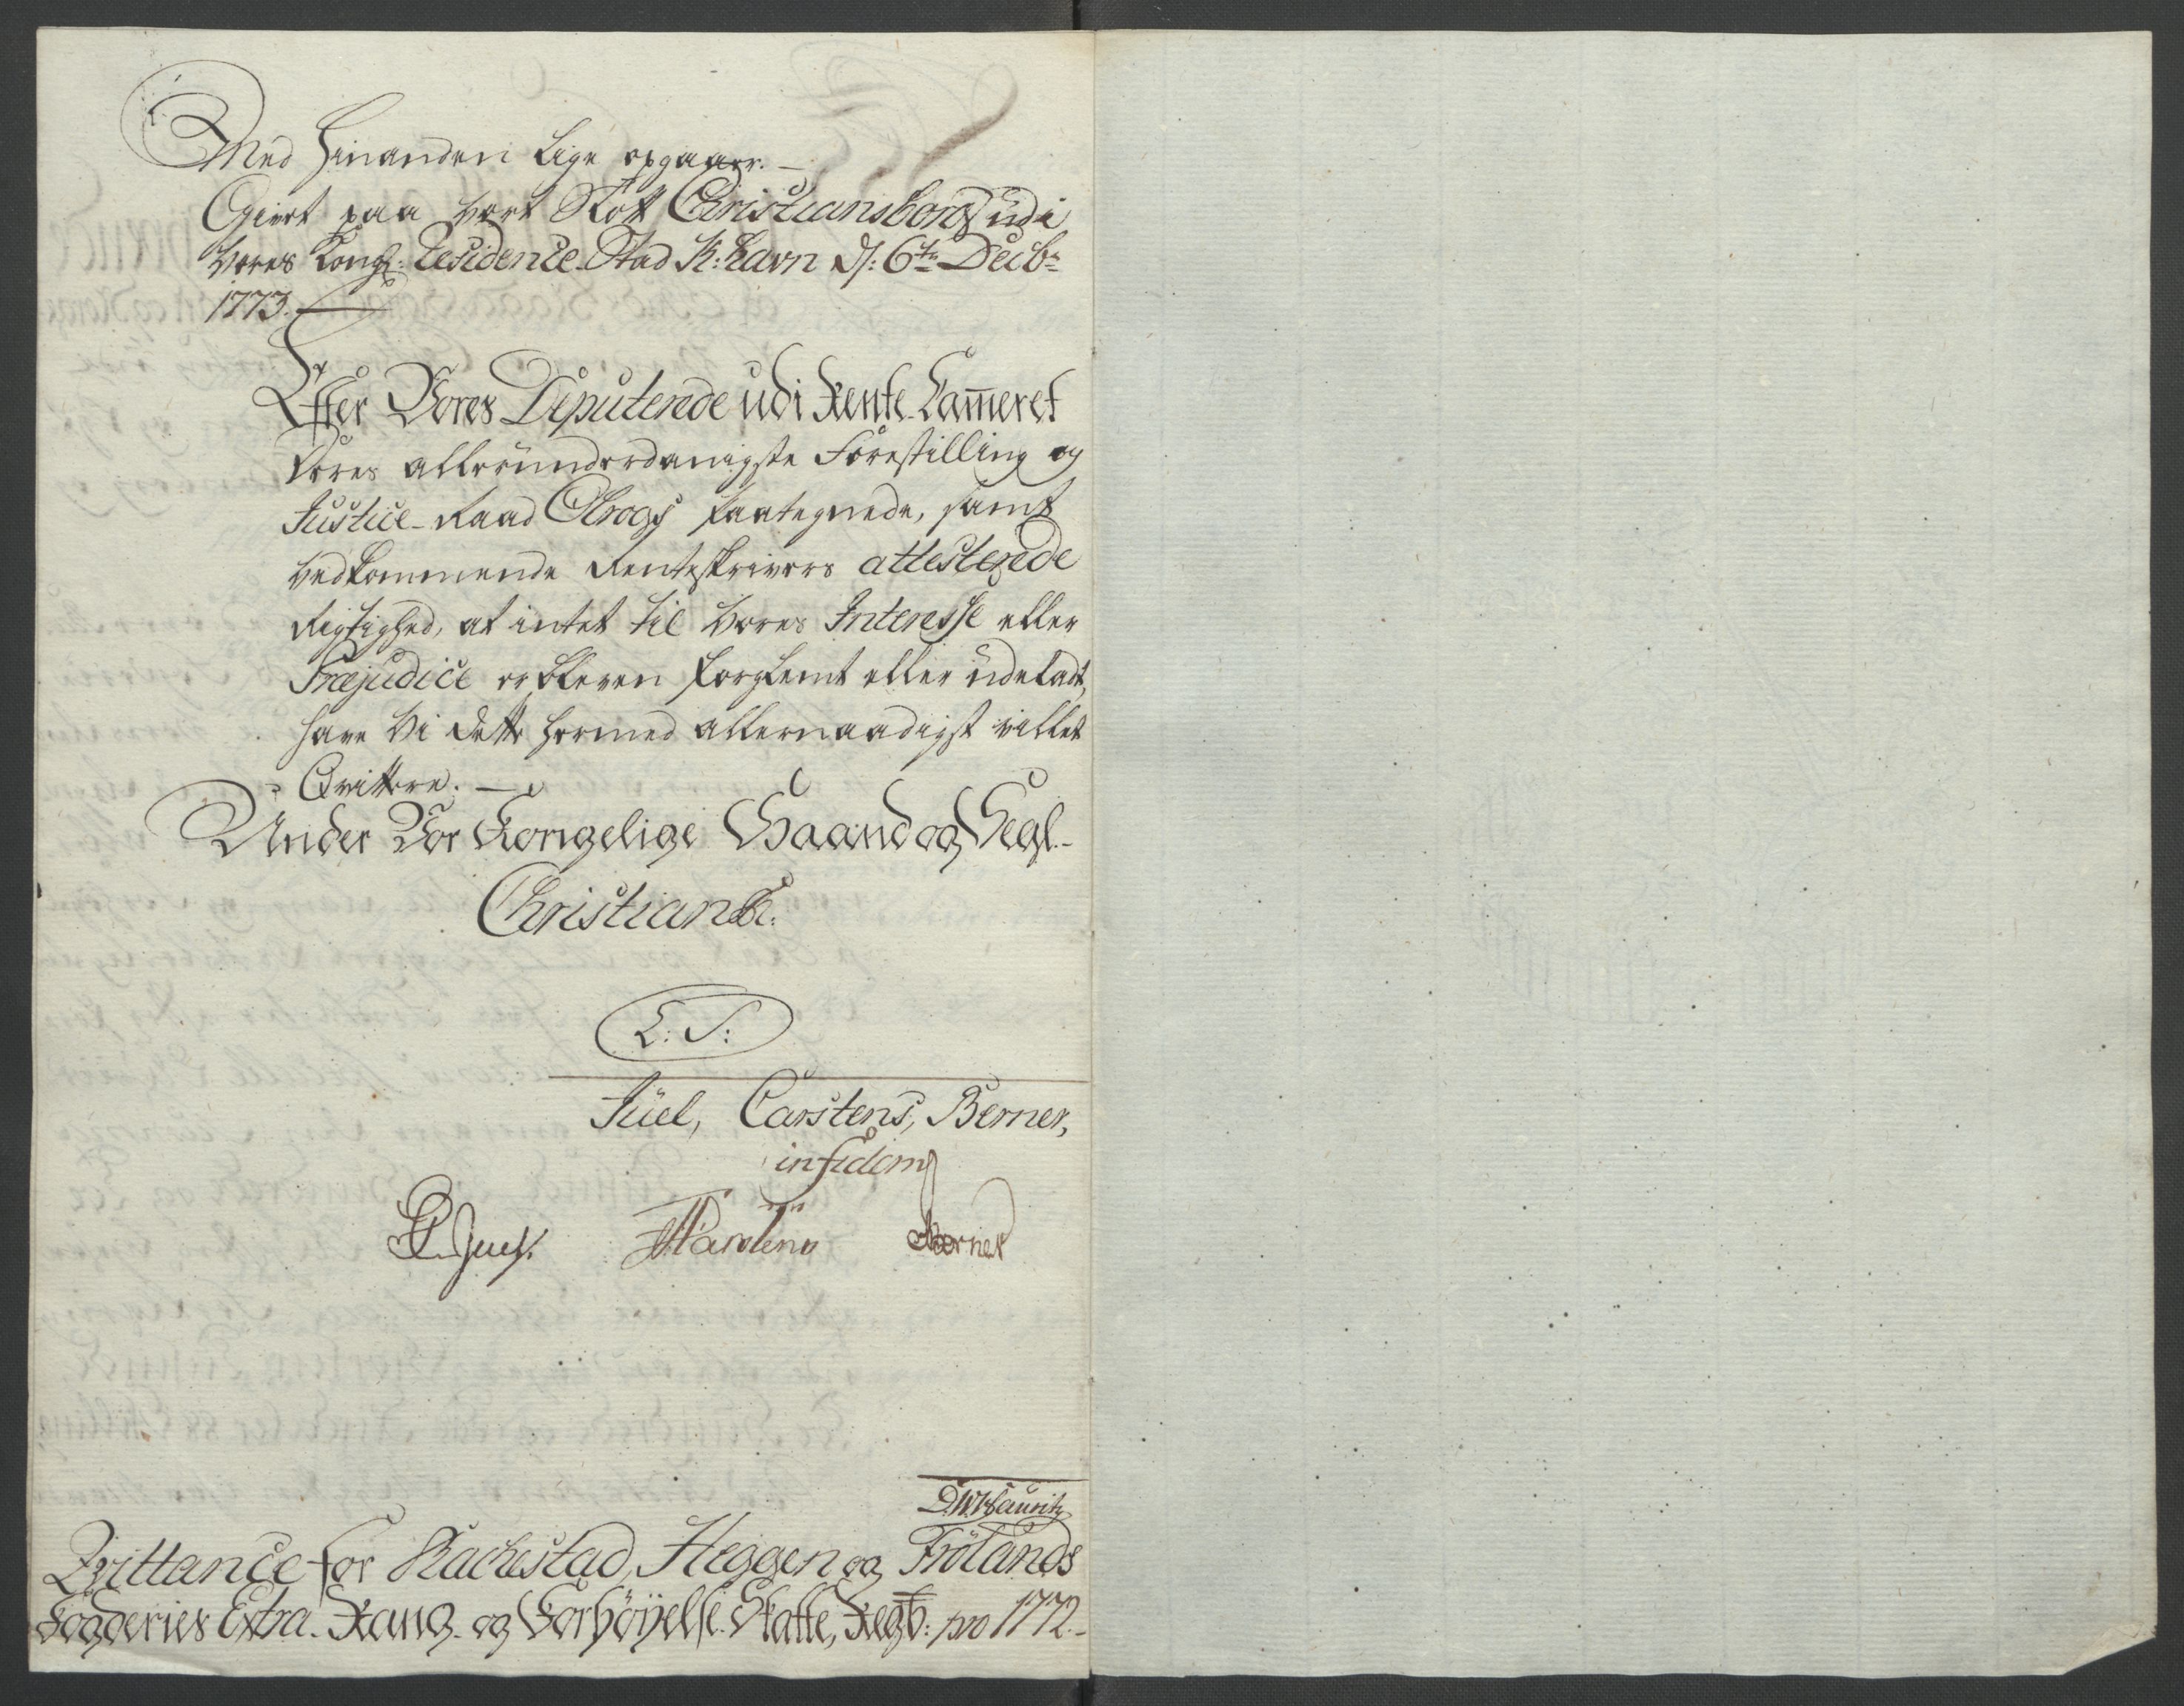 Med hinanden lige opgaaer. –
Givet paa vort Slot Christiansborg udi
Vores Kongl: Residentz-Stad K:havn d: 6te Decbr
1773. –
Efter Vores Deputerede udi Rente-Cam̅eret
deres allerunderdanigste Forestilling og
Justice-Raad Olrogs paategnede, samt
vedkommende Renteskrivers attesterede
Rigtighed, at intet til Vores Interesse eller
Præjudice er bleven forglemt eller udeladt,
have Vi dette hermed allernaadigst villet
Qvittere. –
Under Vor Kongelige Haand og Segl. –
Christian R.
L: S:
Jüel, Carstens, Berner,
in fidem
Juel. Carstens Berner
Qvittance for Rachestad, Heggen og Frölands
Fogderies Extra-Rang- og Forhöyelse-Skatte, Regsb: pro 1772. –